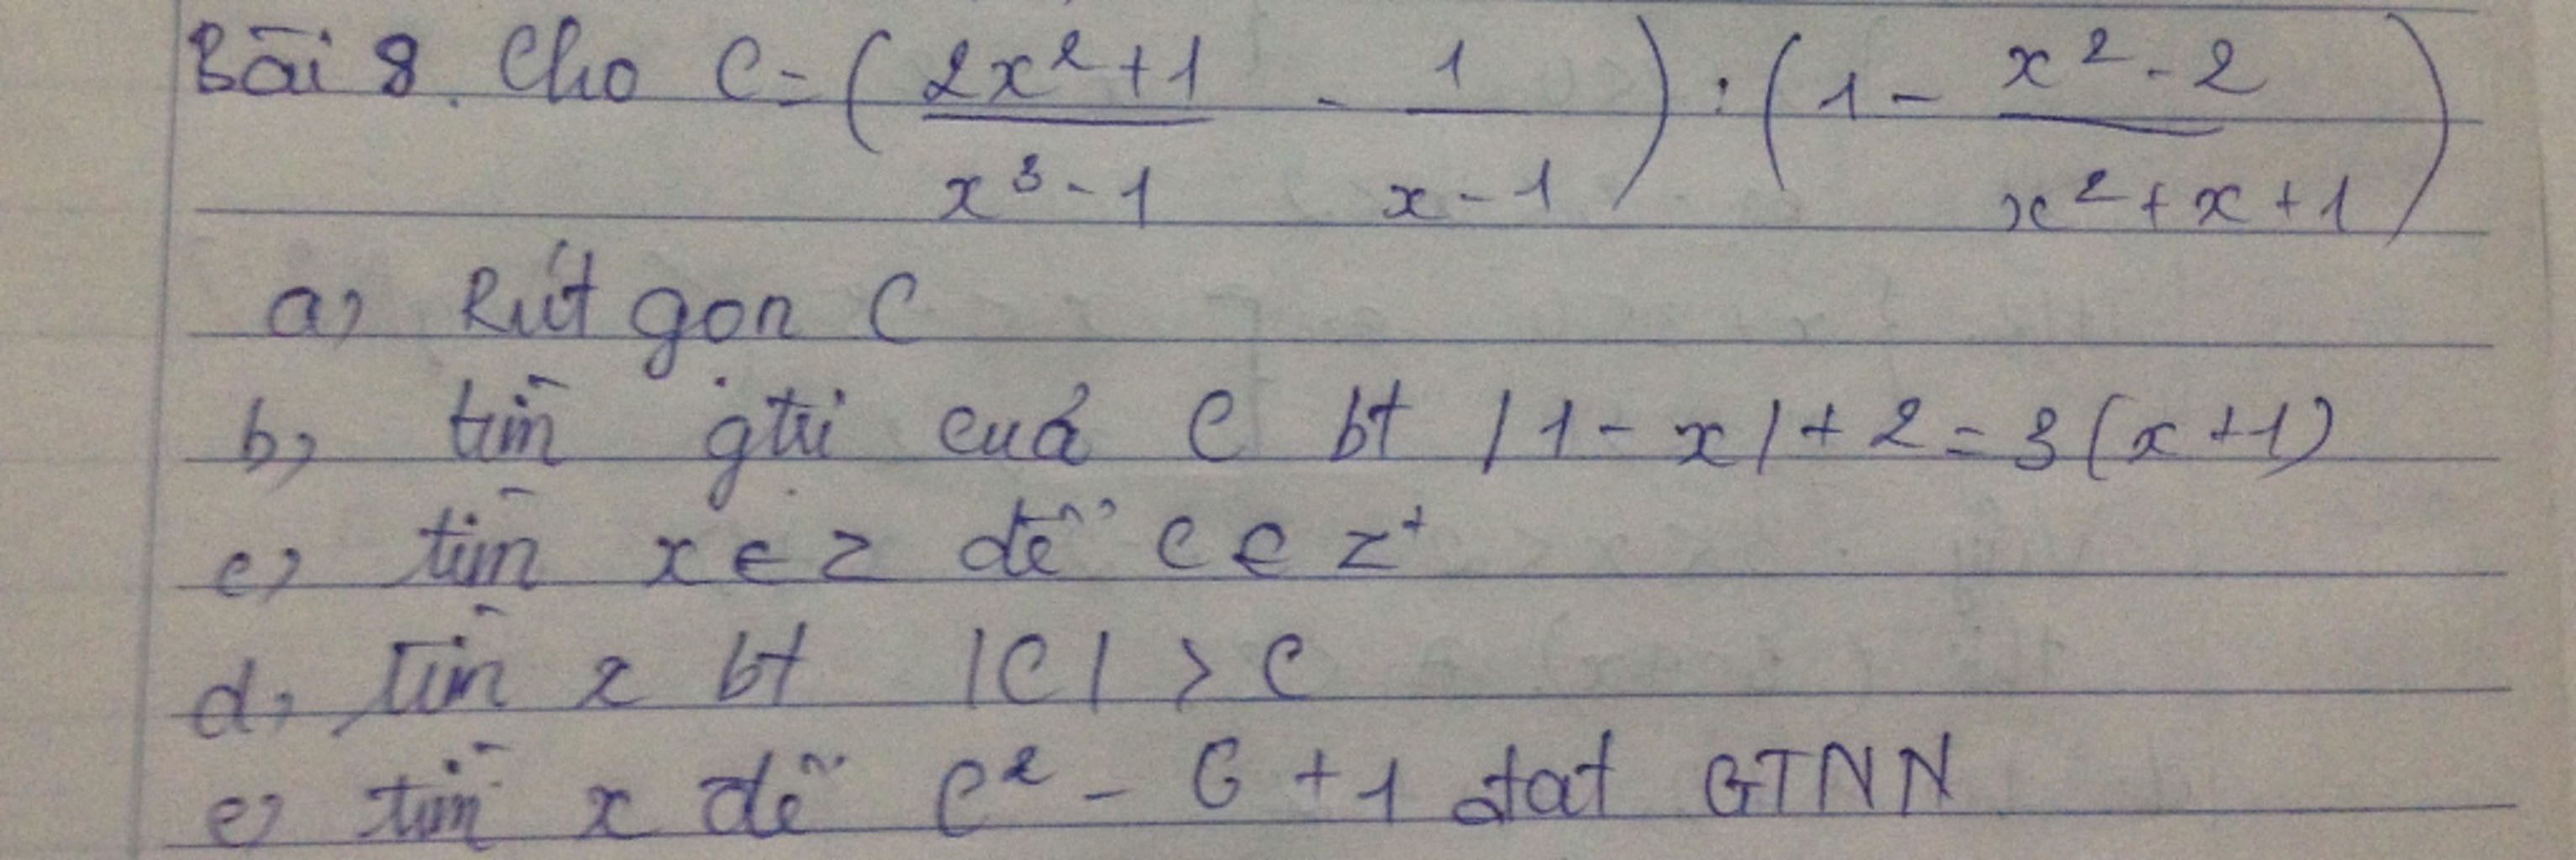 Bài 8. Cho C = ( (2x² + 1)/(x³ - 1) - 1/(x - 1) ) : ( 1 - (x² - 2)/(x² + x + 1) )
a, Rút gọn C
b, tìm gtri của C bt |1 - x| + 2 = 3(x + 1)
c, tìm x ∈ Z để C ∈ Z⁺
d, Tìm x bt |C| > C
e, tìm x để C² - C + 1 đạt GTNN